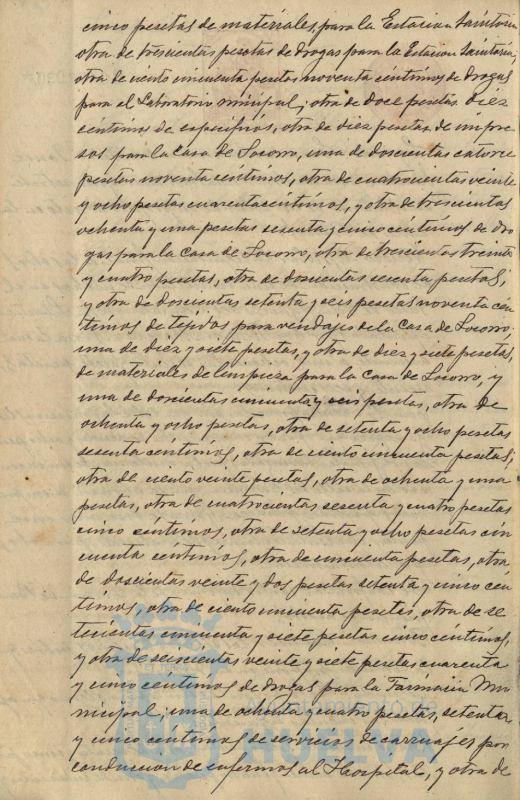 cinco pesetas de materiales, para la Estacion Sanitaria,
otra de trescientas pesetas de drogas para la Estacion Sanitaria,
otra de ciento cincuenta pesetas noventa céntimos de drogas
para el Laboratorio minicipal; otra de doce pesetas diez
céntimos de específicos, otra de diez pesetas de impre-
sos para la Casa de Socorro, una de doscientas catorce
pesetas noventa céntimos, otra de cuatrocientas veinte
y ocho pesetas cuarenta céntimos, y otra de trescientas
ochenta y una pesetas sesenta y cinco céntimos de dro
gas para la Casa de Socorro, otra de trescientas treinta
y cuatro pesetas, otra de doscientas sesenta pesetas;
y otra de doscientas setenta y seis pesetas noventa cén
timos de tejidos para vendajes de la Casa de Socorro;
una de diez y siete pesetas, y otra de diez y siete pesetas,
de materiales de limpieza para la Casa de Socorro, y
una de doscientas cincuenta y seis pesetas, otra de
ochenta y ocho pesetas, otra de setenta y ocho pesetas
sesenta céntimos, otra de ciento cincuenta pesetas;
otra de ciento veinte pesetas, otra de ochenta y una
pesetas, otra de cuatrocientas sesenta y cuatro pesetas
cinco céntimos, otra de setenta y ocho pesetas cin
cuenta céntimos, otra de cincuenta pesetas, otra
de doscientas veinte y dos pesetas setenta y cinco cén
timos, otra de ciento cincuenta pesetas, otra de se
tecientas cincuenta y siete pesetas cinco céntimos,
y otra de seiscientas veinte y siete pesetas cuarenta
y cinco céntimos de drogas para la Farmacia Mu
nicipal; una de ochenta y cuatro pesetas, setenta
y cinco céntimos de servicios de carruajes por
conduccion de enfermos al Hospital, y otra de
HUELVA